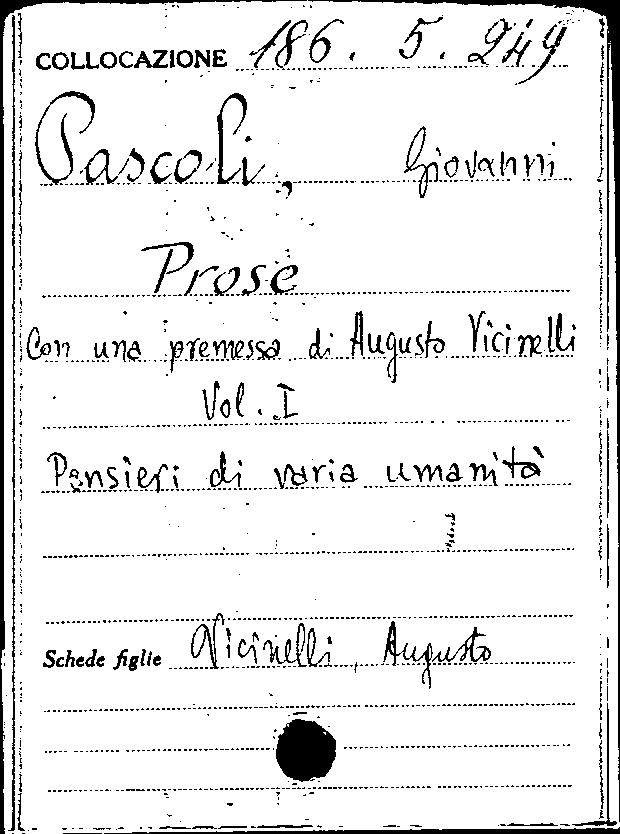 COLLOCAZIONE 186. 5. 249
Pascoli, Giovanni
Prose
Con una premessa di Augusto Vicinelli
Vol. I
Pensieri di varia umanità
Schede figlie Vicinelli, Augusto